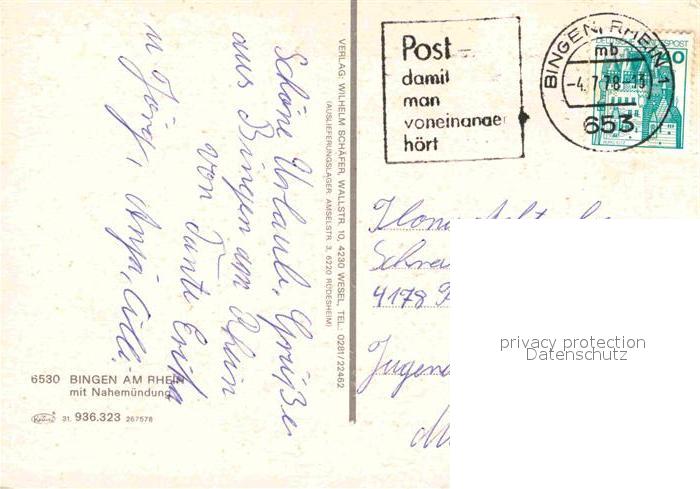 Schöne Urlaubs Grüße
aus Bingen am Rhein
von Tante Erika
u Jörg, Anja,
VERLAG: WILHELM SCHÄFER, WALLSTR. 10, 4230 WESEL, TEL.: 0281/22462
(AUSLIEFERUNGSLAGER: AMSELSTR. 3, 6220 RÜDESHEIM)
6530 BINGEN AM RHEIN
mit Nahemündung
31. 936.323 267578
Post –
damit
man
voneinander
hört
BINGEN, RHEIN 1
mb
653
4178
privacy protection
Datenschutz